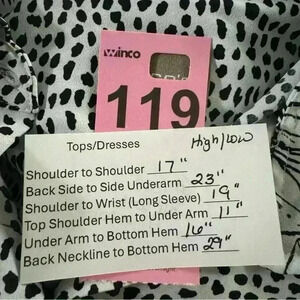 winco
119
Tops/Dresses High/Low
Shoulder to Shoulder 17"
Back Side to Side Underarm 23"
Shoulder to Wrist (Long Sleeve) 19"
Top Shoulder Hem to Under Arm 11"
Under Arm to Bottom Hem 16"
Back Neckline to Bottom Hem 29"